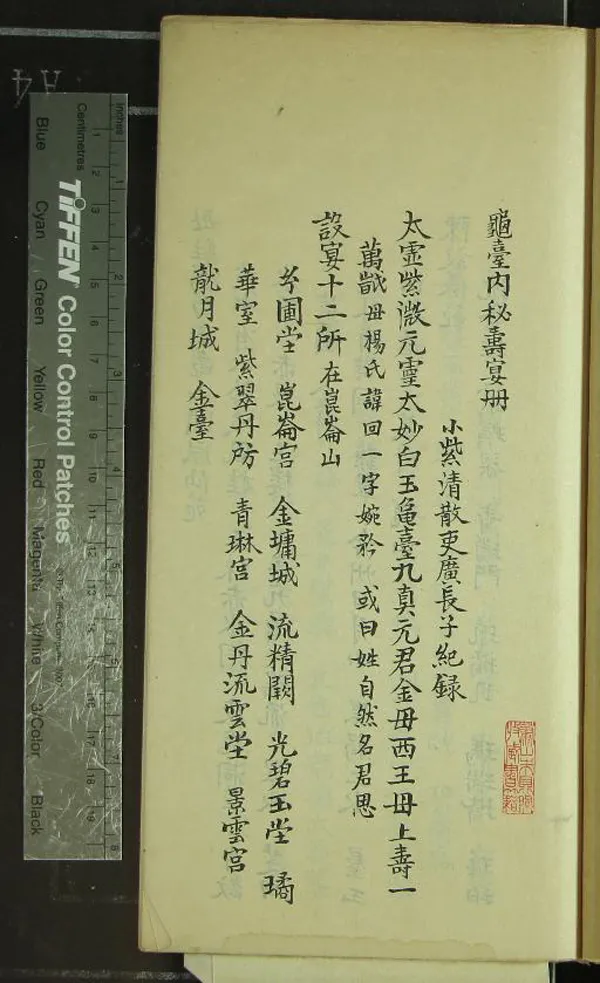 龜臺内秘壽宴册
小紫清散吏廣長子紀録
太靈紫微元靈太妙白玉龜臺九真元君金母西王母上壽一
萬㱕母楊氏諱回一字婉矜 或曰姓自然名君思
設宴十二所在崑崙山
圃堂 崑崙宮 金墉城 流精闕 光碧玉堂 璚
華室 紫翠丹房 青琳宮 金丹流雲堂 景雲宮
龍月城 金臺
inches
Centimetres
TIFFEN Color Control Patches
Blue
Cyan
Green
Yellow
Red
Magenta
White
3/Color
Black
A4